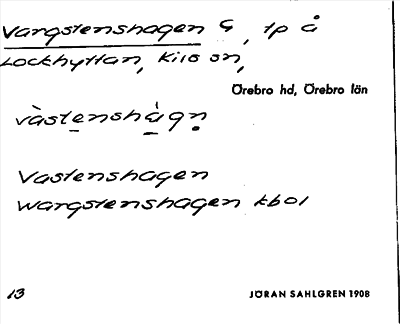 Vargstenshagen G, tp å
Lockhyttan, Kils sn,
Örebro hd, Örebro län
vàstenshàgn
Vastenshagen
Wargstenshagen kbol
13 JÖRAN SAHLGREN 1908